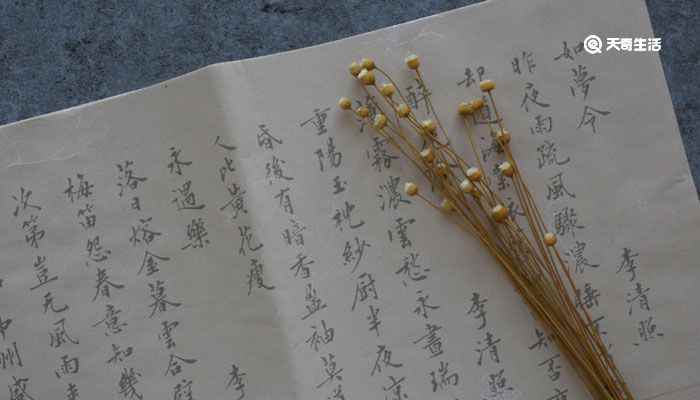 天奇生活
如夢令
李清照
昨夜雨疏風驟濃睡不
却道海棠依 知否
醉 李清照
薄霧濃雲愁永晝瑞
重陽玉枕紗厨半夜凉
昏後有暗香盈袖莫道
人比黃花瘦
永遇樂 李
落日熔金暮雲合璧
梅笛怨春意知幾
次第豈无風雨
中州盛